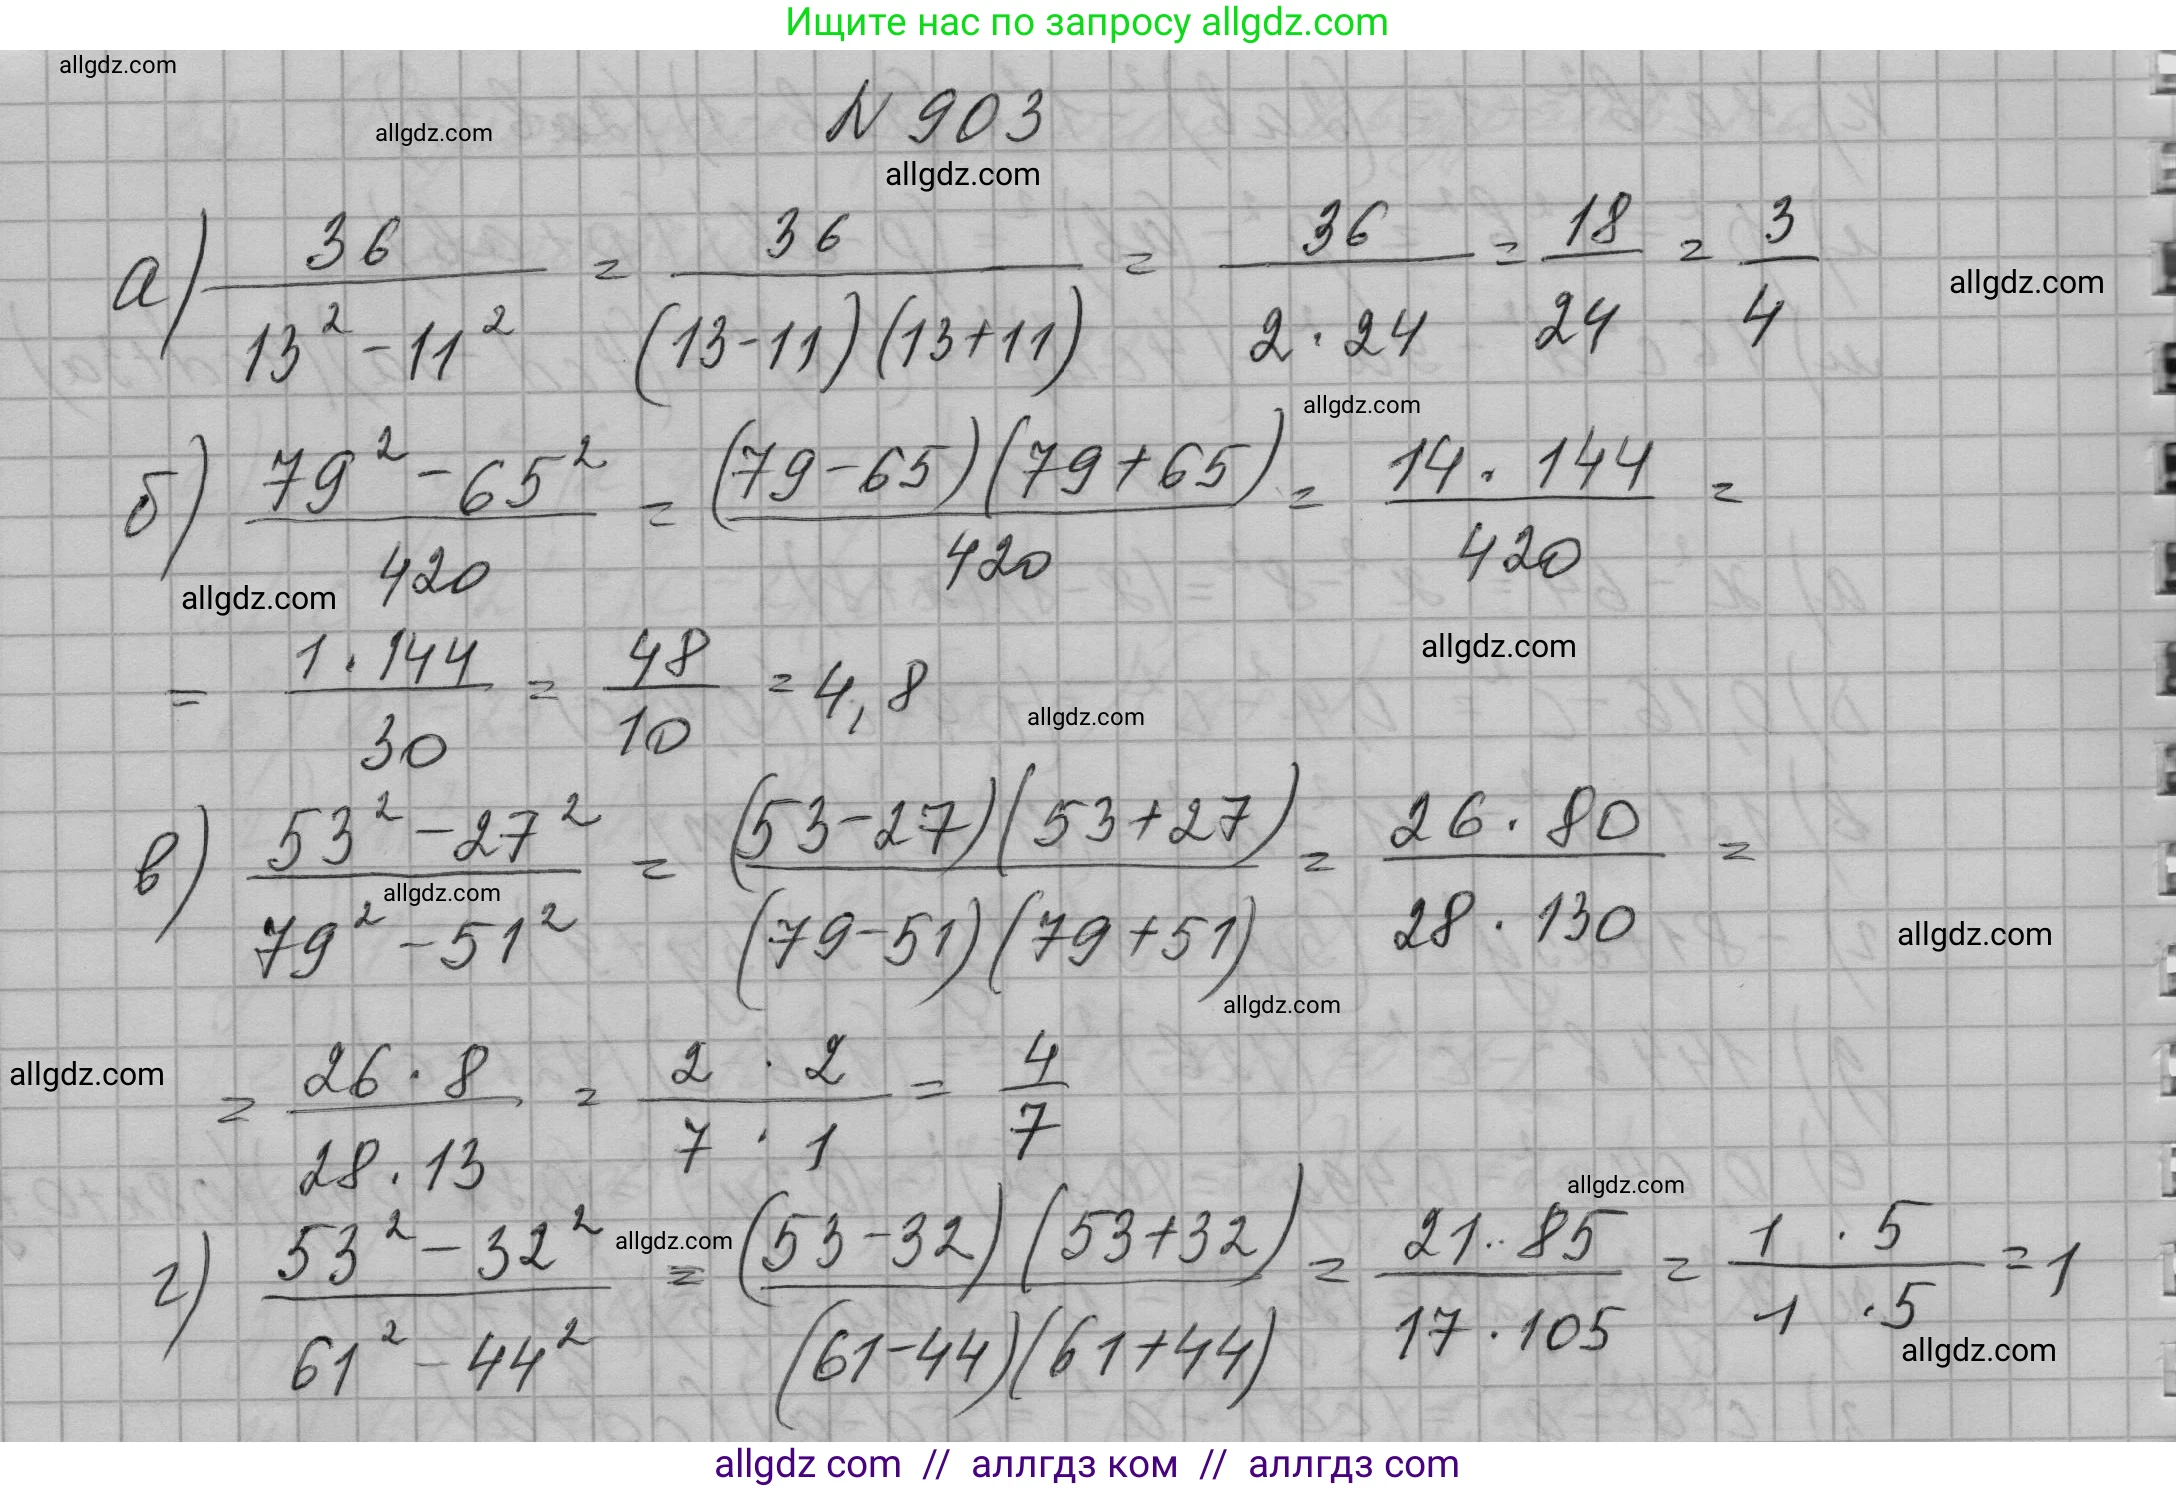 Ищите нас по запросу allgdz.com
allgdz.com
allgdz.com
N 903
allgdz.com
а) 36/(13² - 11²) = 36/((13-11)(13+11)) = 36/(2·24) = 18/24 = 3/4
allgdz.com
allgdz.com
б) (79² - 65²)/420 = ((79-65)(79+65))/420 = (14·144)/420 =
allgdz.com
allgdz.com
= (1·144)/30 = 48/10 = 4,8
allgdz.com
в) (53² - 27²)/(79² - 51²) = ((53-27)(53+27))/((79-51)(79+51)) = (26·80)/(28·130) =
allgdz.com
allgdz.com
allgdz.com
allgdz.com
= (26·8)/(28·13) = (2·2)/(7·1) = 4/7
allgdz.com
г) (53² - 32²)/(61² - 44²) = ((53-32)(53+32))/((61-44)(61+44)) = (21·85)/(17·105) = (1·5)/(1·5) = 1
allgdz.com
allgdz.com
allgdz com // аллгдз ком // аллгдз com